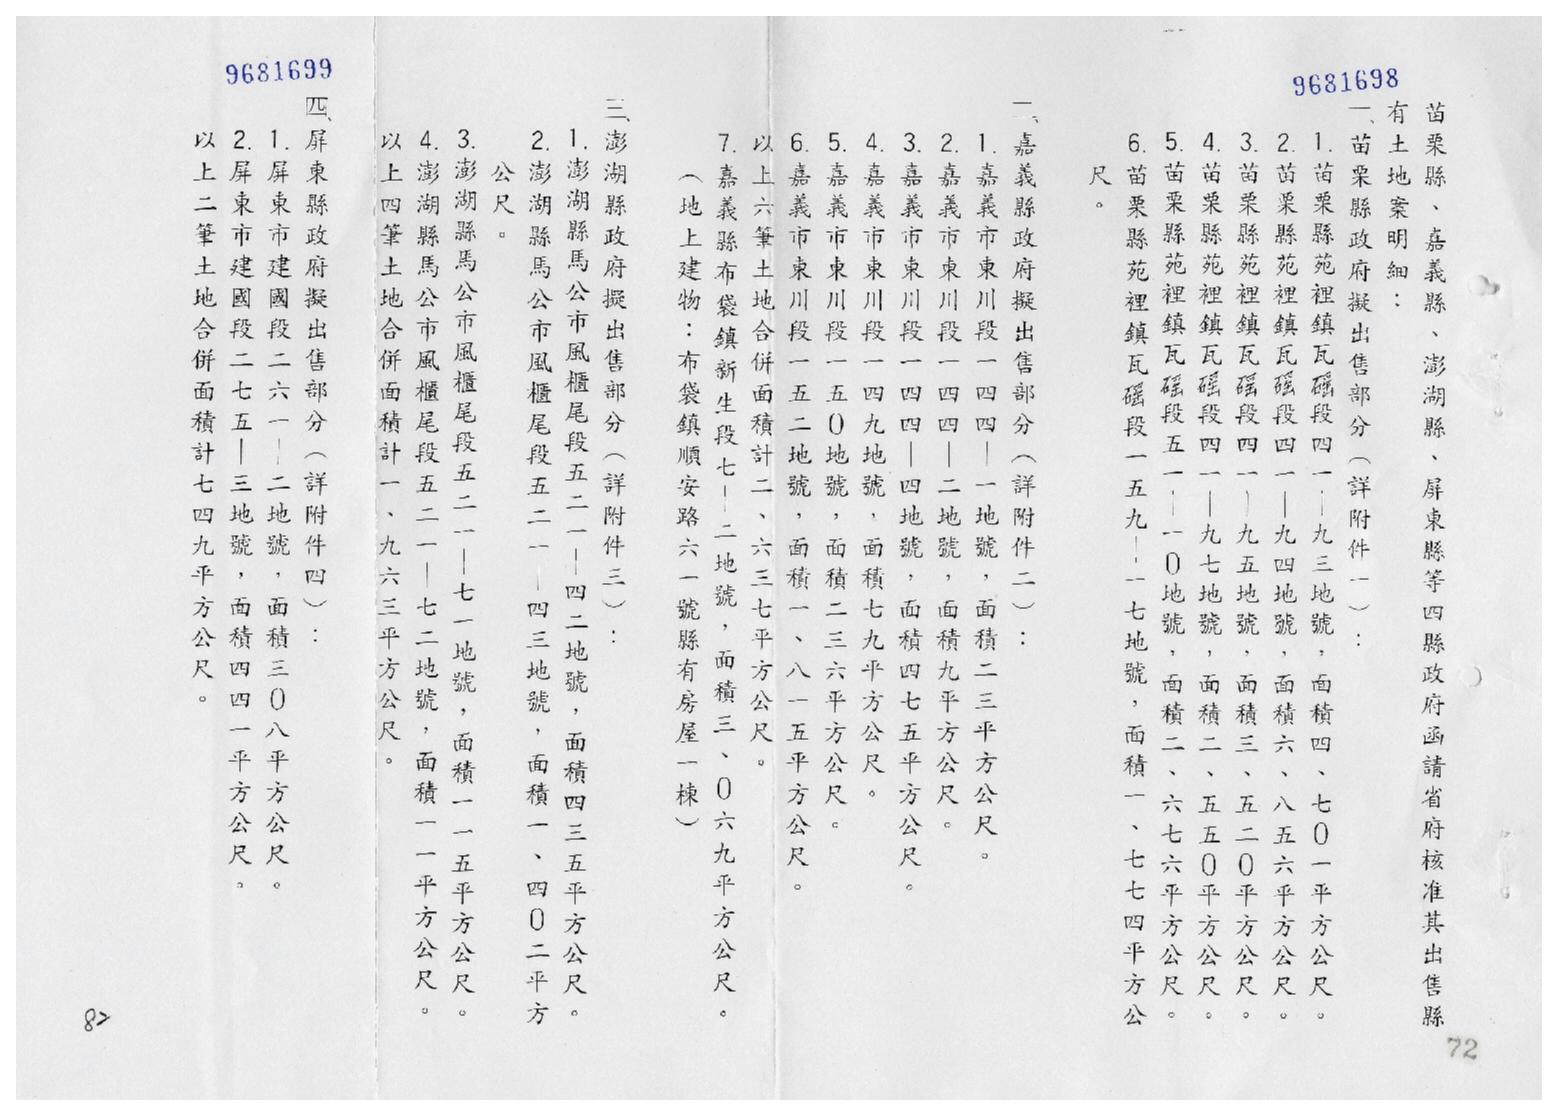 9681698
苗栗縣、嘉義縣、澎湖縣、屏東縣等四縣政府函請省府核准其出售縣
有土地案明細：
一、苗栗縣政府擬出售部分（詳附件一）：
1. 苗栗縣苑裡鎮瓦磘段四一—九三地號，面積四、七０一平方公尺。
2. 苗栗縣苑裡鎮瓦磘段四一—九四地號，面積六、八五六平方公尺。
3. 苗栗縣苑裡鎮瓦磘段四一—九五地號，面積三、五二０平方公尺。
4. 苗栗縣苑裡鎮瓦磘段四一—九七地號，面積二、五五０平方公尺。
5. 苗栗縣苑裡鎮瓦磘段五一—一０地號，面積二、六七六平方公尺。
6. 苗栗縣苑裡鎮瓦磘段一五九—一七地號，面積一、七七四平方公
尺。
二、嘉義縣政府擬出售部分（詳附件二）：
1. 嘉義市東川段一四四—一地號，面積二三平方公尺。
2. 嘉義市東川段一四四—二地號，面積九平方公尺。
3. 嘉義市東川段一四四—四地號，面積四七五平方公尺。
4. 嘉義市東川段一四九地號，面積七九平方公尺。
5. 嘉義市東川段一五０地號，面積二三六平方公尺。
6. 嘉義市東川段一五二地號，面積一、八一五平方公尺。
以上六筆土地合併面積計二、六三七平方公尺。
7. 嘉義縣布袋鎮新生段七—二地號，面積三、０六九平方公尺。
（地上建物：布袋鎮順安路六一號縣有房屋一棟）
三、澎湖縣政府擬出售部分（詳附件三）：
1. 澎湖縣馬公市風櫃尾段五二一—四二地號，面積四三五平方公尺。
2. 澎湖縣馬公市風櫃尾段五二一—四三地號，面積一、四０二平方
公尺。
3. 澎湖縣馬公市風櫃尾段五二一—七一地號，面積一一五平方公尺。
4. 澎湖縣馬公市風櫃尾段五二一—七二地號，面積一一平方公尺。
以上四筆土地合併面積計一、九六三平方公尺。
9681699
四、屏東縣政府擬出售部分（詳附件四）：
1. 屏東市建國段二六一—二地號，面積三０八平方公尺。
2. 屏東市建國段二七五—三地號，面積四四一平方公尺。
以上二筆土地合併面積計七四九平方公尺。
72